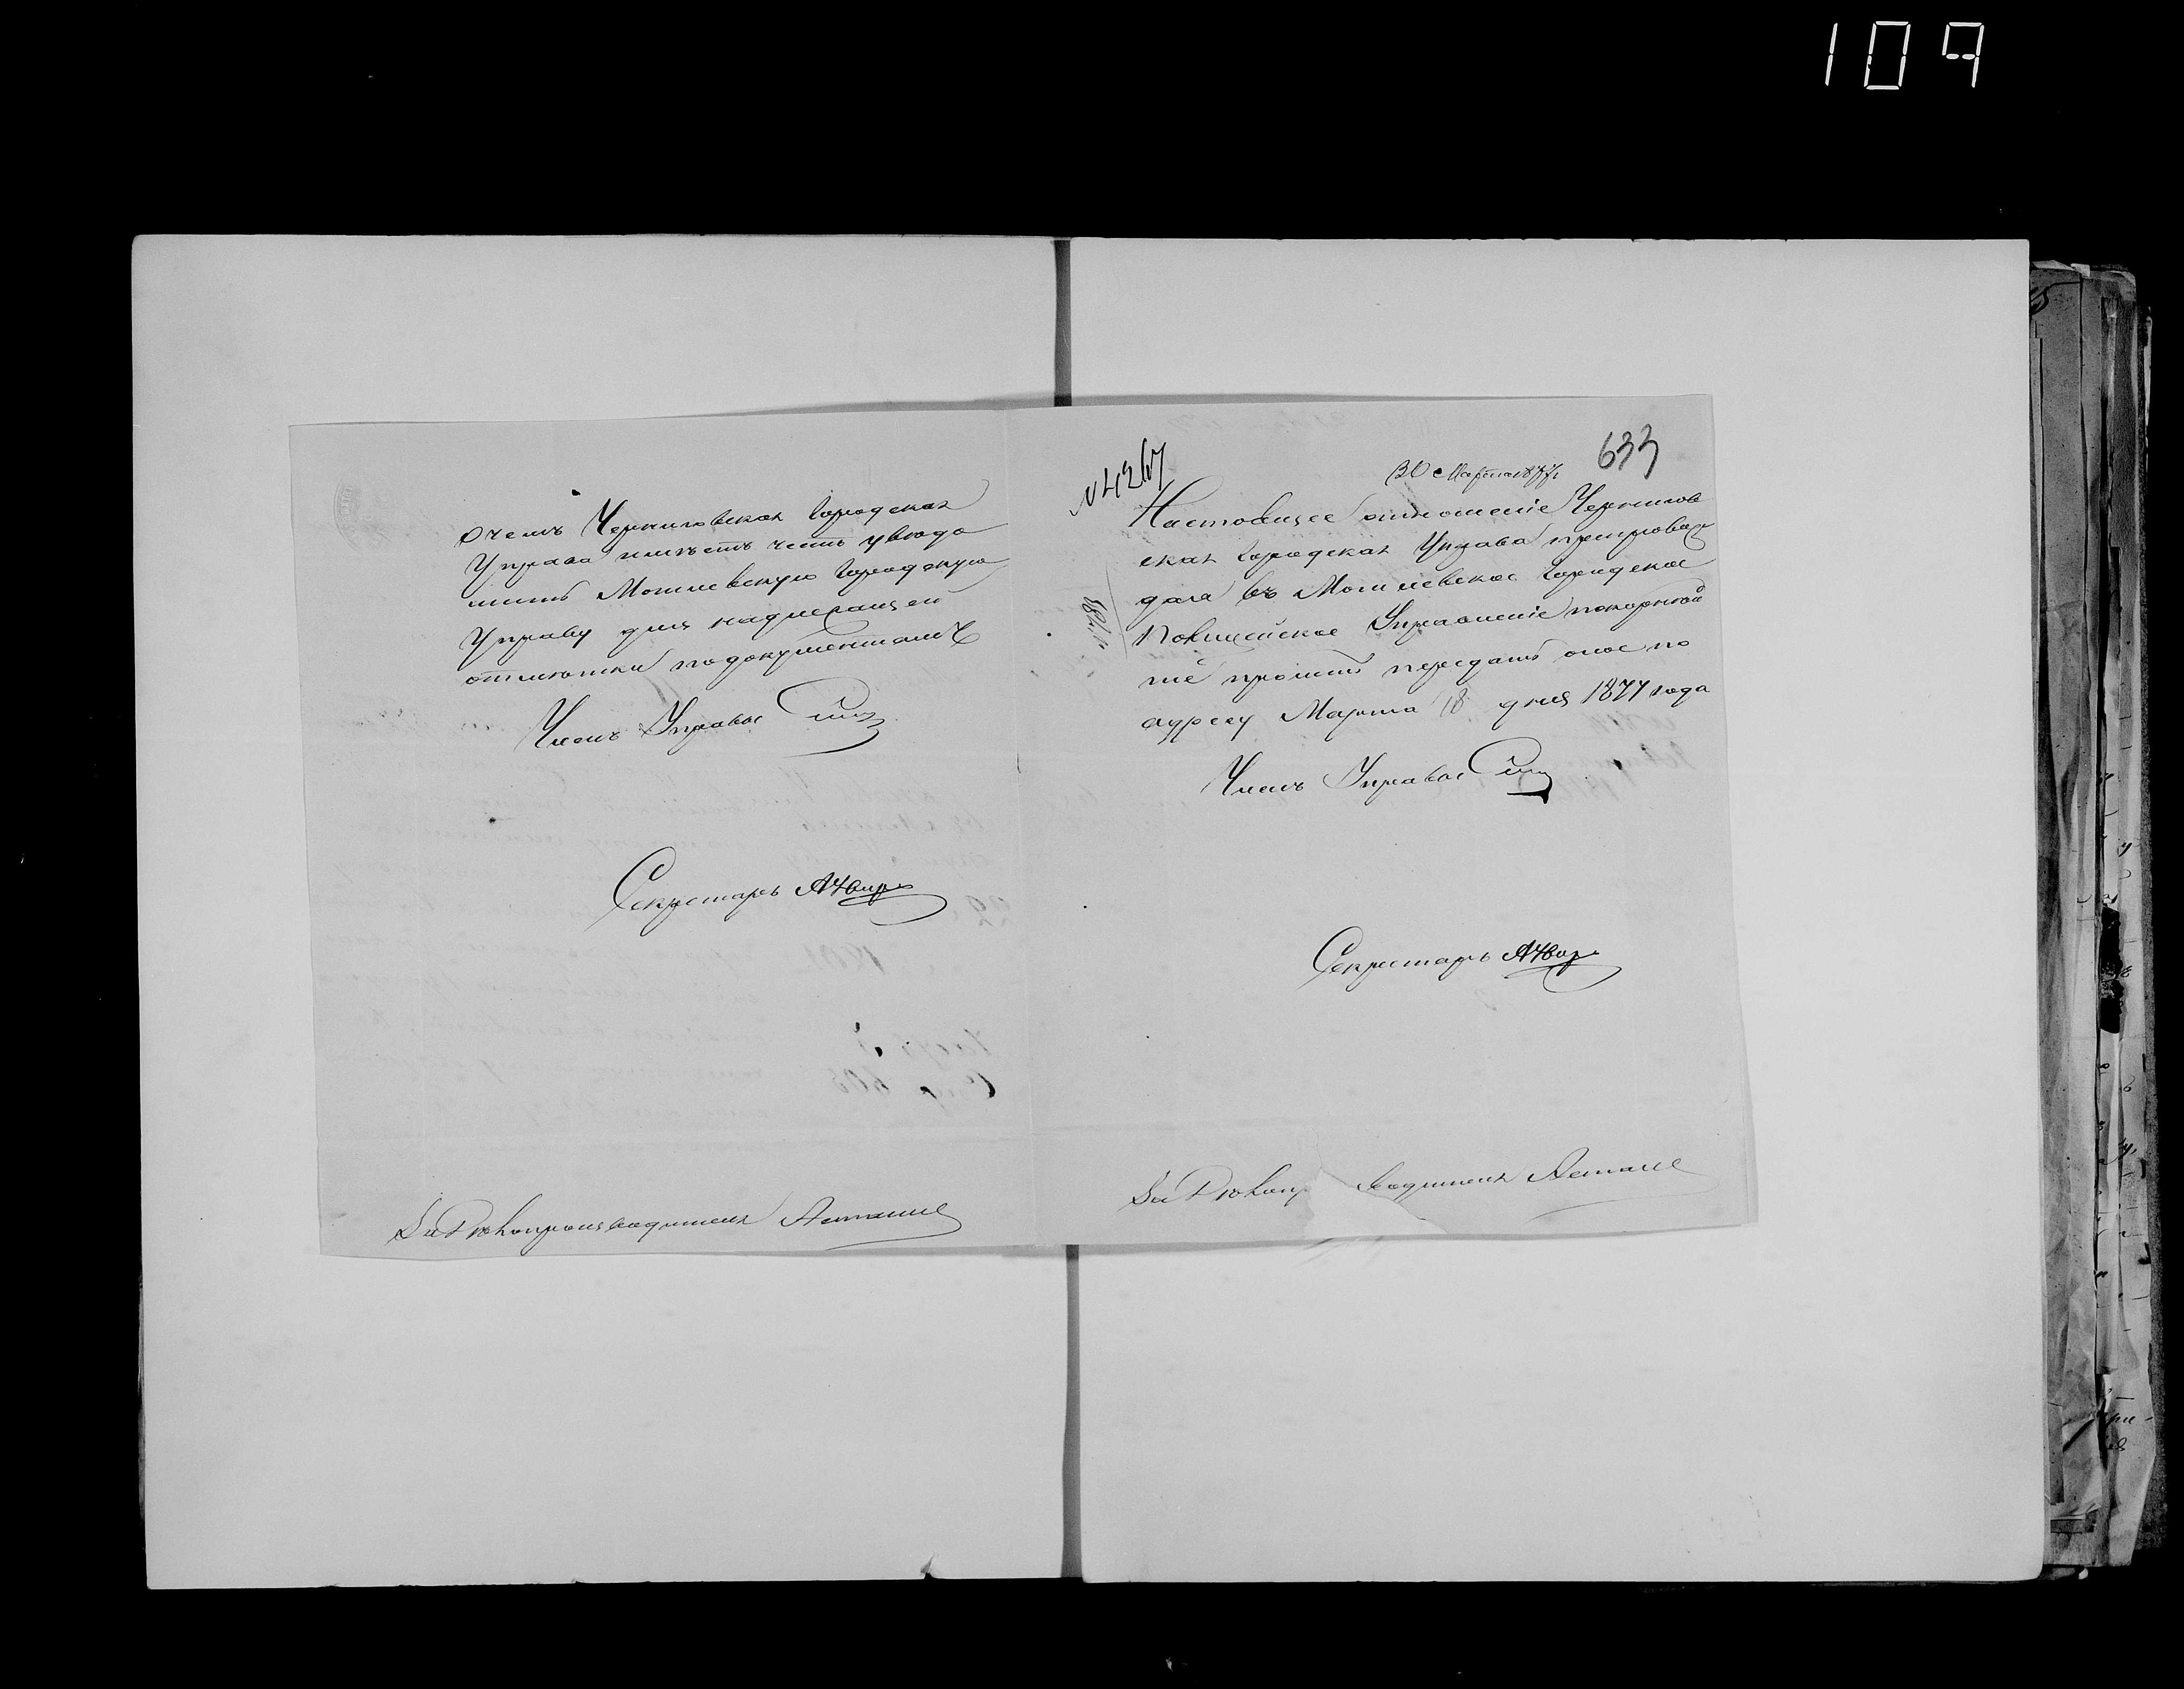 109
о чемъ Черниговская Городская
Управа имѣетъ честь увѣдо
мить Могилевскую Городскую
Управу для надлежащей
отмѣтки по документамъ
Членъ Управы
Секретарь
За Дѣлопроизводителя
633
N 4267
30 Марта 1877
Настоящее отношеніе Чернигов
ская Городская Управа препровож
дая въ Могилевское Городское
Полицейское Управленіе покорнѣй
ше проситъ передать оное по
адресу Марта 18 дня 1877 года
Членъ Управы
Секретарь
За Дѣлопр водителя